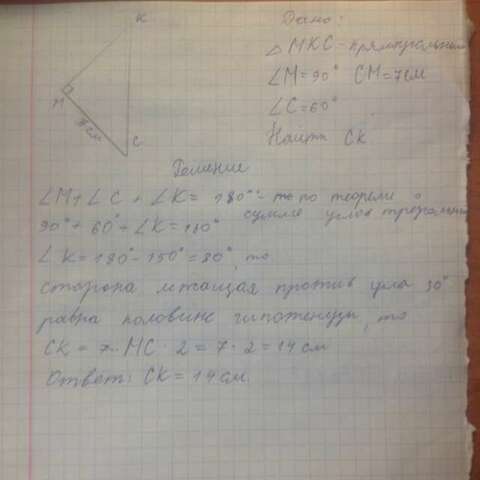 К
М
7см
С
Дано:
△ МКС - прямоугольный
∠М = 90° СМ = 7см
∠С = 60°
Найти СК
Решение
∠М + ∠С + ∠К = 180° - то по теореме о
сумме углов треугольника
90° + 60° + ∠К = 180°
∠К = 180° - 150° = 30°, то
сторона лежащая против угла 30°
равна половине гипотенузы, то
СК = 7. МС · 2 = 7 · 2 = 14 см
Ответ: СК = 14 см.